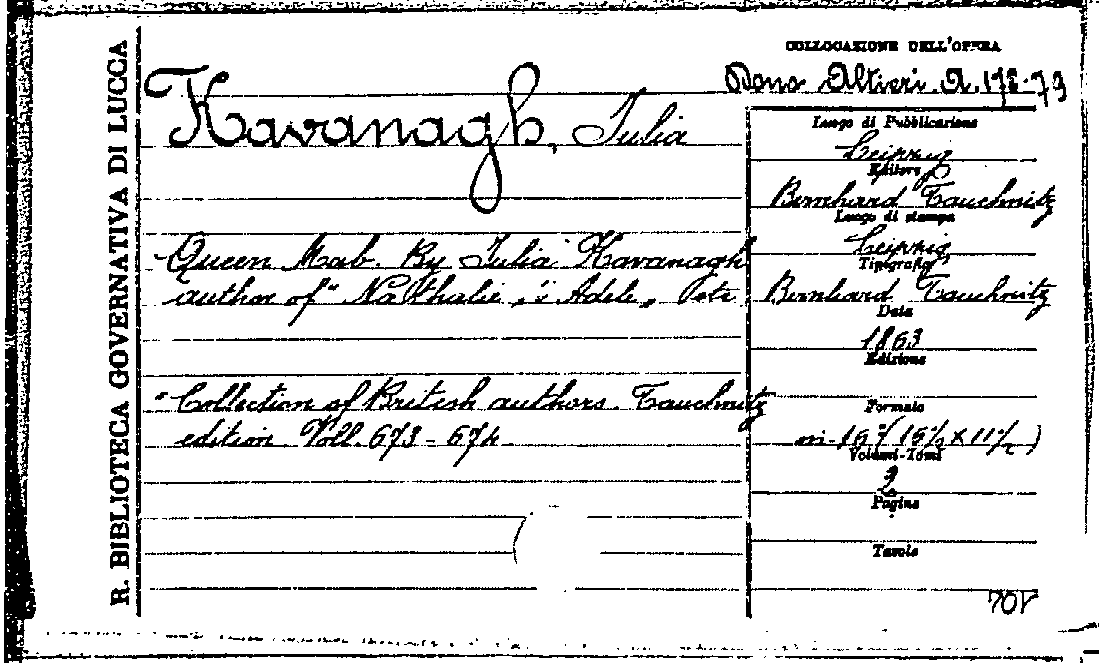 R. BIBLIOTECA GOVERNATIVA DI LUCCA
COLLOCAZIONE DELL'OPERA
Dono Altieri. A. 178-79
Kavanagh, Julia
Luogo di Pubblicazione
Leipzig
Editore
Bernhard Tauchnitz
Luogo di stampa
Leipzig
Tipografia
Bernhard Tauchnitz
Data
1863
Edizione
Formato
in-16° (15½ x 11½)
Volumi-Tomi
2
Pagine
Tavole
Queen Mab. By Julia Kavanagh
author of "Nathalie", "Adele",
"Collection of British authors. Tauchnitz
edition. Voll. 673-674